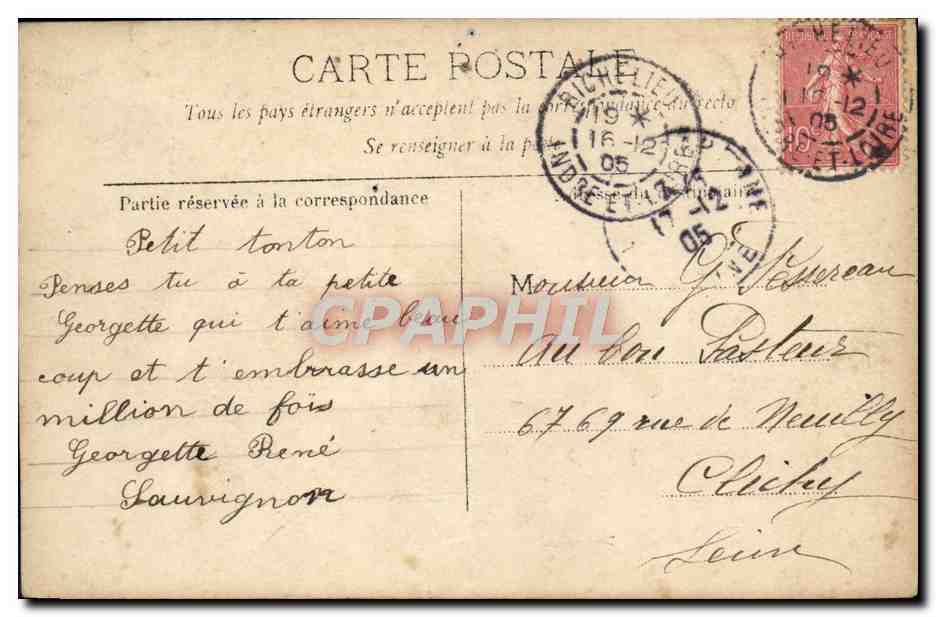 CARTE POSTALE
Tous les pays étrangers n'acceptent pas la correspondance au recto
Se renseigner à la poste
Partie réservée à la correspondance
Petit tonton
Penses tu à ta petite
Georgette qui t'aime beau
coup et t'embrrasse un
million de fois
Georgette René
Sauvignon
Adresse du destinataire
Monsieur G Tessereau
au bon Pasteur
67 69 rue de Neuilly
Clichy
Seine
RICHELIEU
19 *
16 -12
05
INDRE ET LOIRE
PLANE
17 -12
05
REPUBLIQUE FRANÇAISE
10c
RICHELIEU
19 *
16 -12
05
ET-LOIRE
CPAPHIL